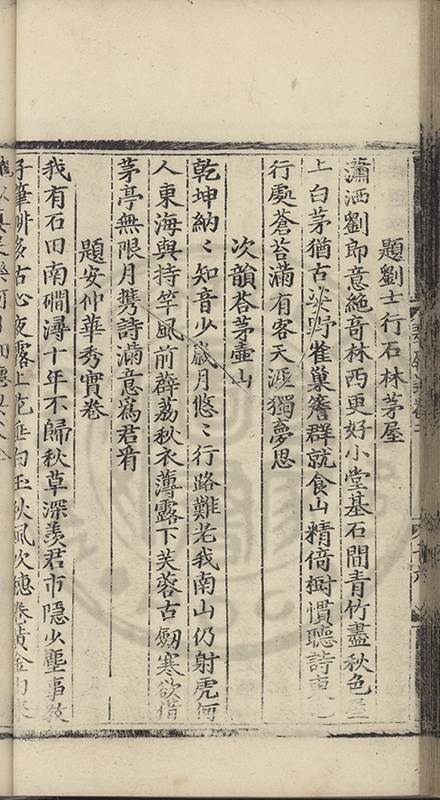 題劉士行石林茅屋
瀟洒劉郎意絶竒林西更好小堂基石間青竹盡秋色
上白茅猶古野雀巢簷群就食山精倚樹慣聽詩
行處蒼苔滿有客天涯獨夢思
次韻荅茅壷山
乾坤納〻知音少歲月悠〻行路難老我南山仍射虎何
人東海與持竿風前薜荔秋衣薄露下芙蓉古劒寒欲借
茅亭無限月携詩滿意爲君看
題安仲華秀實卷
我有石田南磵潯十年不歸秋草深羨君市隱少塵事教
子筆耕多古心夜露上花垂白玉秋風吹穗卷黄金